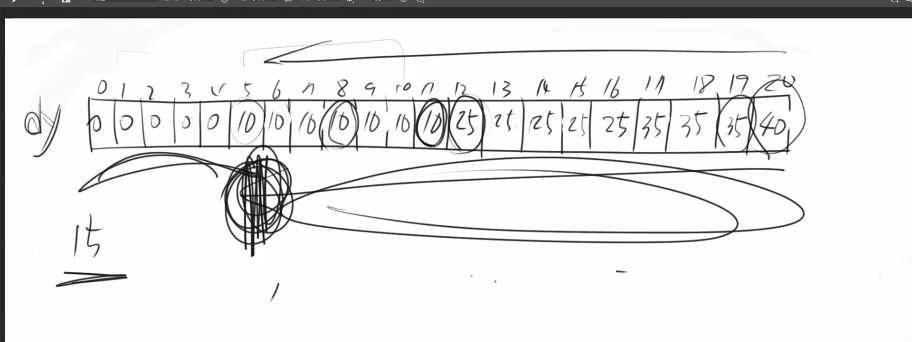 0 1 2 3 4 5 6 7 8 9 10 11 12 13 14 15 16 17 18 19 20
dy 0 0 0 0 0 10 10 10 10 10 10 10 25 25 25 25 25 35 35 35 40
15